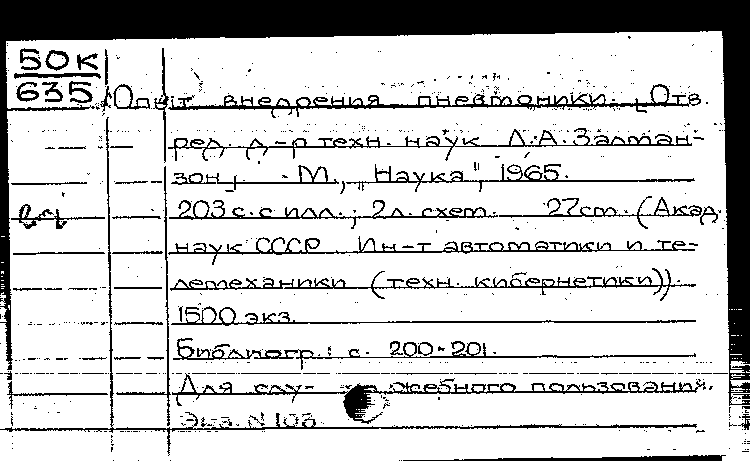 50К
635
Опыт внедрения пневмоники. [Отв.
ред. д-р техн. наук Л.А. Залман-
зон]. М., „Наука", 1965.
203 с. с илл.; 2 л. схем. 27 см. (Акад.
наук СССР. Ин-т автоматики и те-
лемеханики (техн. кибернетики)).
1500 экз.
Библиогр.: с. 200-201.
Для слу- жебного пользования.
Экз. N 103